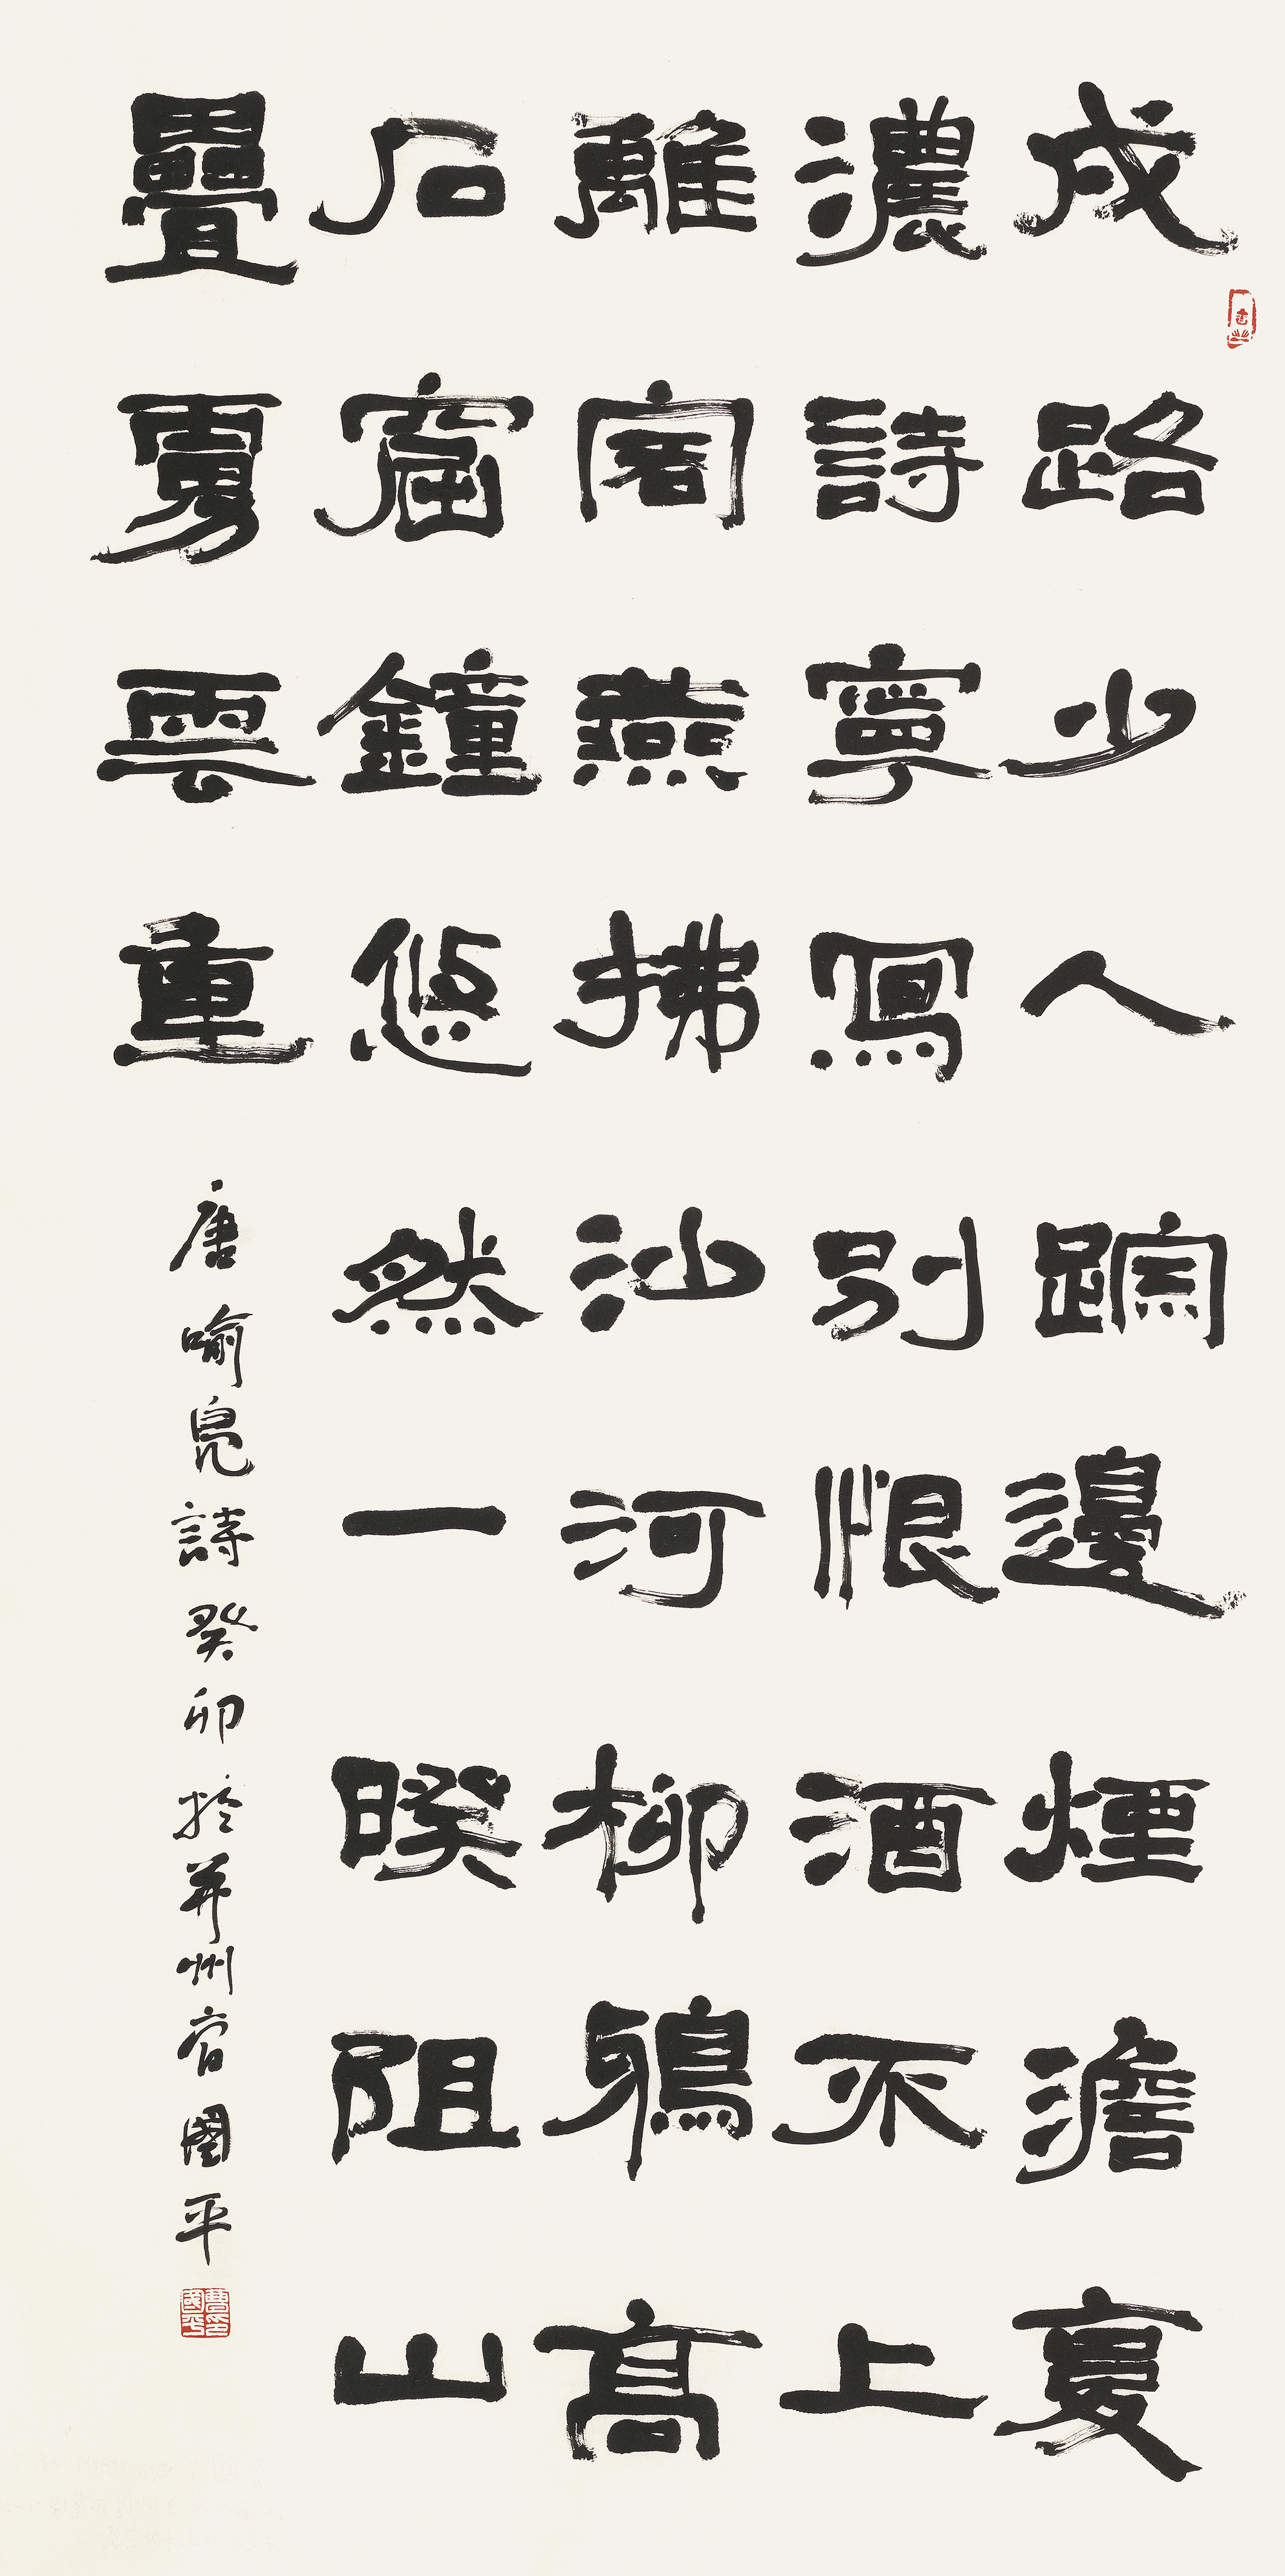 戍路少人踪邊煙澹复
濃詩寧寫別恨酒不上
離容燕拂沙河柳鴉高
石窟鐘悠然一暌阻山
疊虜雲重
唐喻鳧詩癸卯於并州曹國平
曹印國平